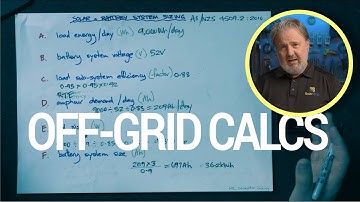 SOLAR & BATTERY SYSTEM SIZING AS/NZS 4509.2:2010
A. load energy/day (Wh) 9,000Wh/day
B. battery system voltage (V) 52V
C. load sub-system efficiency (factor) 0.83
0.95 x 0.95 x 0.92
RTE
D. amphour demand/day (Ah)
9000 ÷ 52 ÷ 0.83 = 209Ah/day
OFF-GRID CALCS
F. battery system size (Ah)
209 x 3 = 697Ah = 36.2kWh
0.9